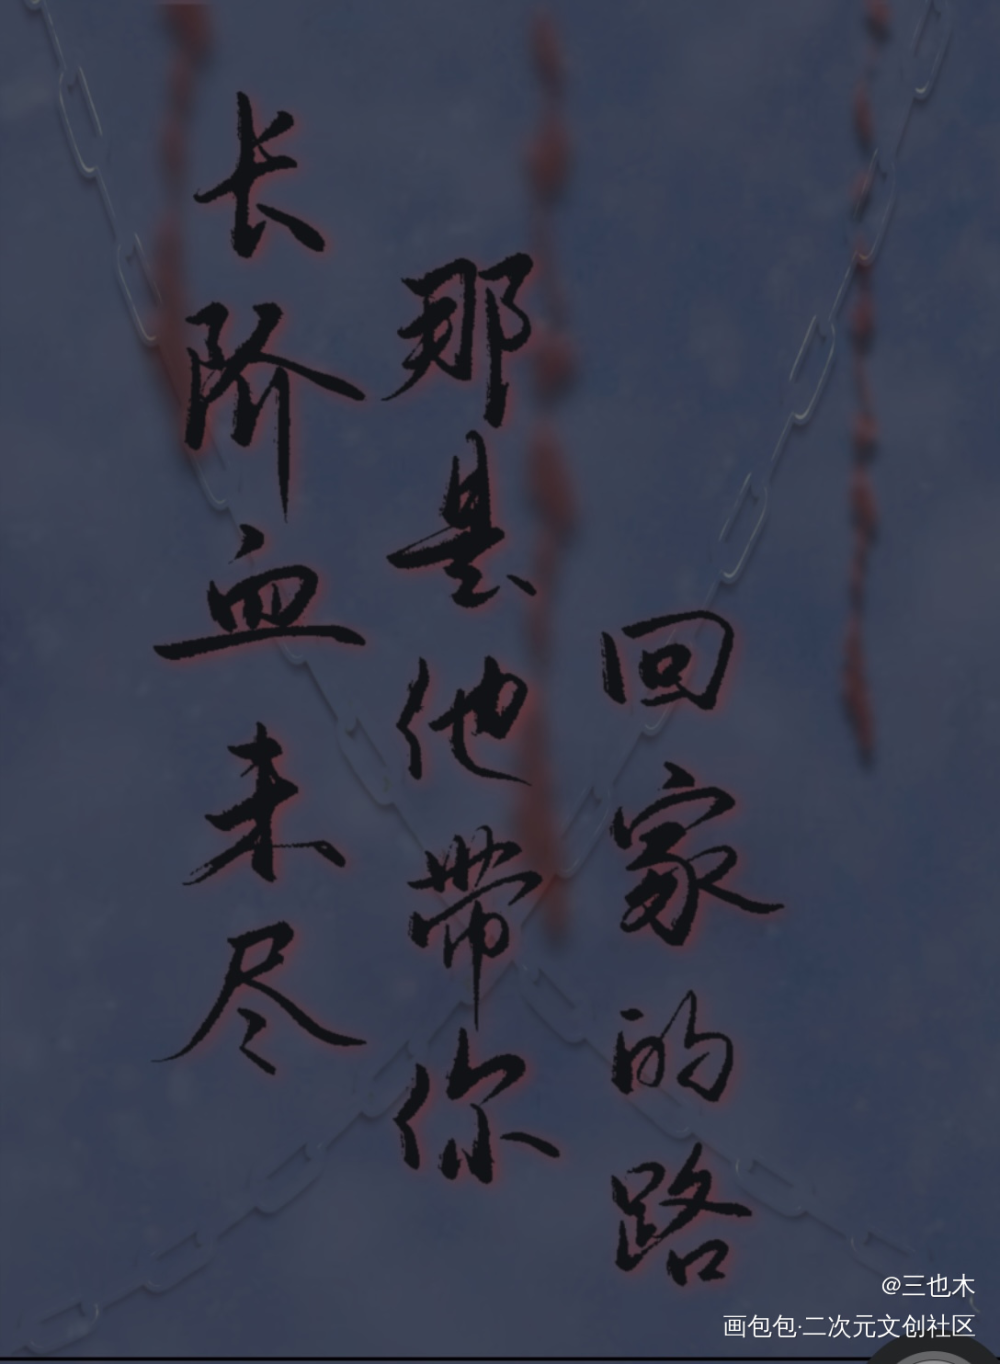 长阶血未尽
那是他带你
回家的路
@三也木
画包包·二次元文创社区